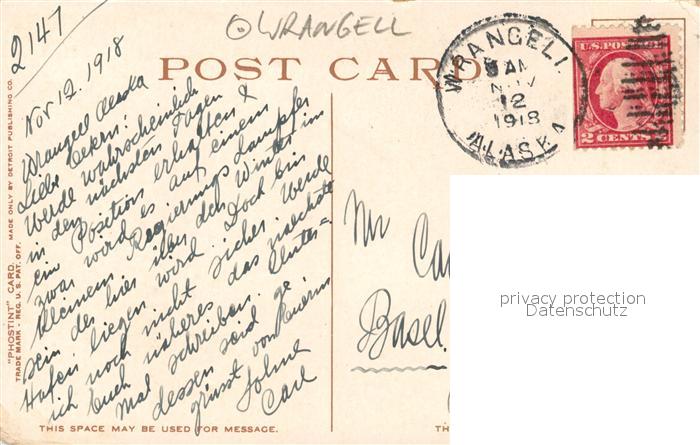 2147
WRANGELL
POST CARD
WRANGELL
8 AM
NOV
12
1918
ALASKA
U.S. POSTAGE
2 CENTS 2
"PHOSTINT" CARD. MADE ONLY BY DETROIT PUBLISHING CO.
TRADE MARK - REG. U. S. PAT. OFF.
Nov 12. 1918
Wrangell Alaska
Liebe Eltern:
Werde wahrscheinlich
in den nächsten Tagen
ein Position erhalten &
zwar wird es auf einem
kleinem Regierungs Dampfer
sein der hier über den Winter im
Hafen liegen wird. Doch bin
ich noch nicht sicher. Werde
Euch näheres das naechste
Mal schreiben. Unter=
dessen seid ge
grüsst von Euerm
Sohne
Carl
Mr Ca
Basel.
privacy protection
Datenschutz
THIS SPACE MAY BE USED FOR MESSAGE.
TH